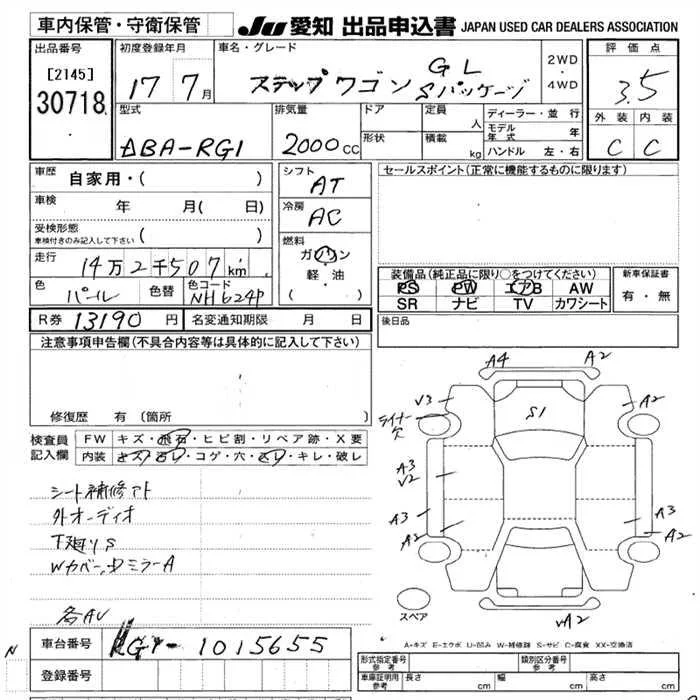 車内保管・守衛保管
JU 愛知 出品申込書 JAPAN USED CAR DEALERS ASSOCIATION
出品番号
[2145]
30718
初度登録年月
17 7月
車名・グレード
ステップワゴン GL Sパッケージ
2WD
・
4WD
評価点
3.5
外装 内装
C C
型式
DBA-RG1
排気量
2000cc
ドア
形状
定員 人
積載 kg
ディーラー・並行
モデル年式 年
ハンドル 左・右
車歴 自家用・( )
車検 年 月( 日)
受検形態
車検付きのみ記入して下さい ( )
走行 14万2千507km
色 パール 色替 色コード NH624P
シフト AT
冷房 AC
燃料
ガソリン
軽・油
( )
セールスポイント(正常に機能するものに限ります)
装備品(純正品に限り○をつけてください)
PS PW エアB AW
SR ナビ TV カワシート
新車保証書
有・無
R券 13190円
名変通知期限 月 日
後日品
注意事項申告欄(不具合内容等は具体的に記入して下さい)
修復歴 有(箇所 )
検査員記入欄
FW キズ・飛石・ヒビ割・リペア跡・X要
内装 キズ・汚レ・コゲ・穴・スレ・キレ・破レ
シート補修アト
外オーディオ
下廻りS
Wカバー、ドミラーA
各AU
A4 A2
V3 A2
ライナー欠
S1
A3
V2
A3 A3
A2 A2
スペア
A2
A-キズ E-エクボ U-凹み W-補修跡 S-サビ C-腐食 XX-交換済
N
車台番号 RG1-1015655
登録番号
形式指定番号 参考
類別区分番号 参考
車庫証明用 参考
長さ cm 幅 cm 高さ cm